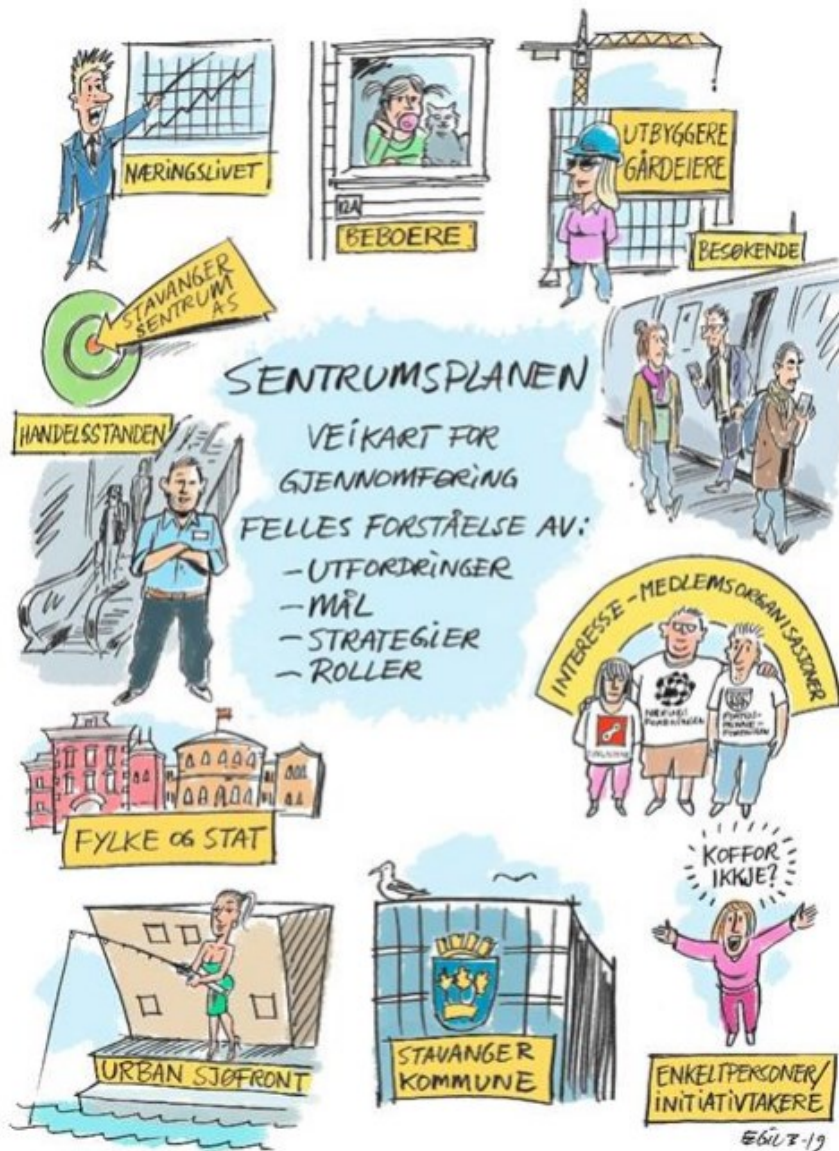 NÆRINGSLIVET
12A
BEBOERE
UTBYGGERE
GÅRDEIERE
BESØKENDE
STAVANGER
SENTRUM
AS
HANDELSSTANDEN
SENTRUMSPLANEN
VEIKART FOR
GJENNOMFØRING
FELLES FORSTÅELSE AV:
- UTFORDRINGER
- MÅL
- STRATEGIER
- ROLLER
INTERESSE - MEDLEMSORGANISASJONER
NÆRINGS
FORENINGEN
FORTIDS-
MINNE-
FORENINGEN
FYLKE OG STAT
KOFFOR
IKKJE?
URBAN SJØFRONT
STAVANGER
KOMMUNE
ENKELTPERSONER/
INITIATIVTAKERE
EGIL 3-19